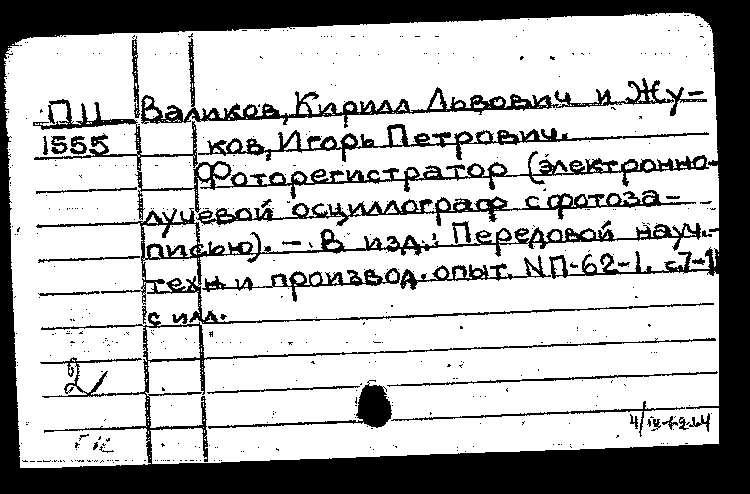 П11 Валиков, Кирилл Львович и Жу-
1555 ков, Игорь Петрович.
Фоторегистратор (электронно-
лучевой осциллограф с фотоза-
писью). — В изд.: Передовой науч.-
техн и производ. опыт. №П-62-1. с.7-11
с илл.
2